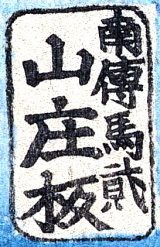 南傳馬貳
山庄板